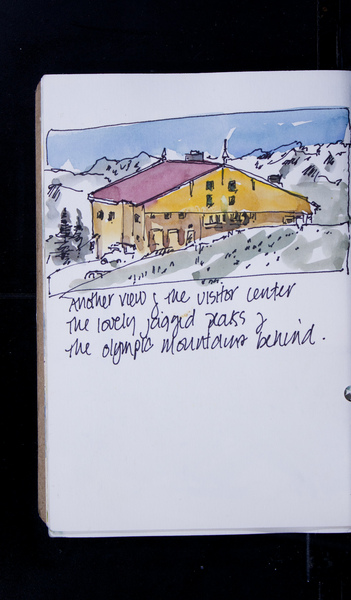 Another view of the visitor center
The lovely jagged peaks of
the olympic mountains behind.